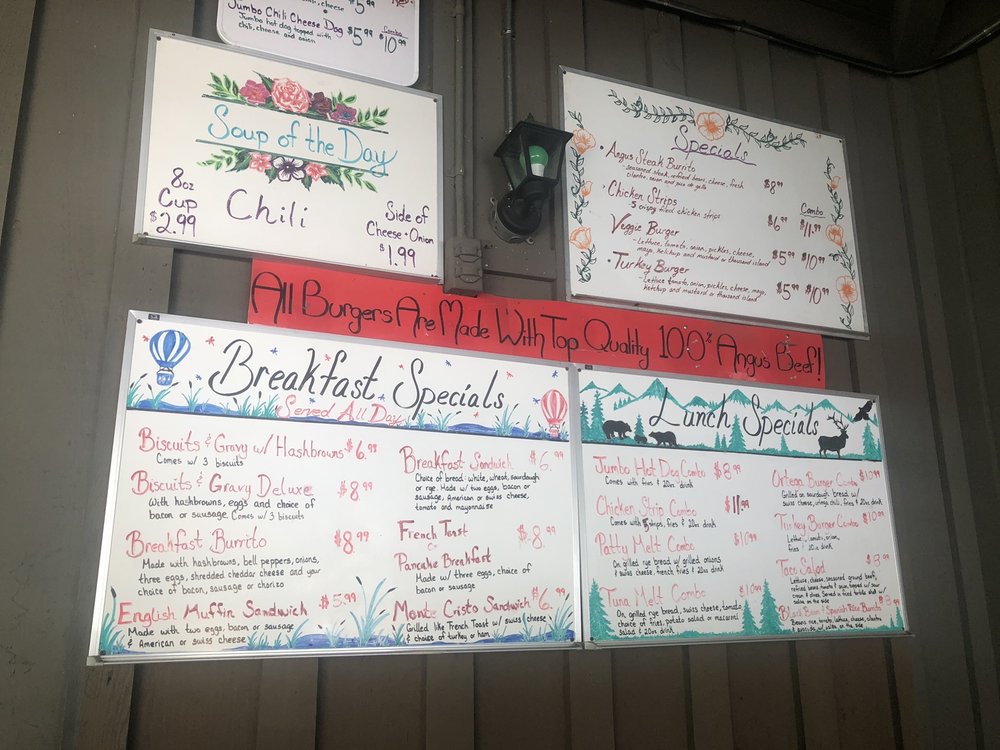 cheese
$5.99
Jumbo Chili Cheese Dog
Jumbo hot dog topped with
chili, cheese, and onion
$5.99
Combo
$10.99
Soup of the Day
8oz
Cup
$2.99
Chili
Side of
Cheese + Onion
$1.99
Specials
• Angus Steak Burrito
seasoned steak, refried beans, cheese, fresh
cilantro, onion and pico de gallo
$8.99
• Chicken Strips
5 crispy fried chicken strips
$6.99
Combo
$11.99
Veggie Burger
- Lettuce, tomato, onion, pickles, cheese,
mayo, ketchup and mustard or thousand island
$5.99
$10.99
• Turkey Burger
- Lettuce tomato, onion, pickles, cheese, mayo,
ketchup and mustard or thousand island
$5.99
$10.99
All Burgers Are Made With Top Quality 100% Angus Beef!
Breakfast Specials
Served All Day
Biscuits & Gravy w/ Hashbrowns $6.99
Comes w/ 3 biscuits
Biscuits & Gravy Deluxe $8.99
With hashbrowns, eggs and choice of
bacon or sausage. Comes w/ 3 biscuits
Breakfast Burrito $8.99
Made with hashbrowns, bell peppers, onions,
three eggs, shredded cheddar cheese and your
choice of bacon, sausage or chorizo
English Muffin Sandwich $5.99
Made with two eggs, bacon or sausage
& American or swiss cheese
Breakfast Sandwich $6.99
Choice of bread: white, wheat, sourdough
or rye. Made w/ two eggs, bacon or
sausage, American or swiss cheese,
tomato and mayonnaise
French Toast
or
$8.99
Pancake Breakfast
Made w/ three eggs, choice of
bacon or sausage
Monte Cristo Sandwich $6.99
Grilled like French Toast w/ swiss cheese
& choice of turkey or ham
Lunch Specials
Jumbo Hot Dog Combo $8.99
Comes with fries & 20oz drink
Chicken Strip Combo $11.99
Comes with 5 strips, fries & 20oz drink
Patty Melt Combo $10.99
On grilled rye bread w/ grilled onions
& swiss cheese, french fries & 20oz drink
Tuna Melt Combo $10.99
On grilled rye bread, swiss cheese, tomato
choice of fries, potato salad or macaroni
salad & 20oz drink
Ortega Burger Combo $10.99
Grilled on sourdough bread w/
swiss cheese, ortega chili, fries & 20oz drink
Turkey Burger Combo $10.99
Lettuce, tomato, onion,
fries & 20oz drink
Taco Salad $8.99
Lettuce, cheese, seasoned ground beef,
refried beans, tomato & onion, topped w/ sour
cream & olives. Served in fried tortilla shell w/
salsa on the side
Black Bean & Spanish Rice Burrito $8.99
Beans, rice, tomato, lettuce, cheese, cilantro